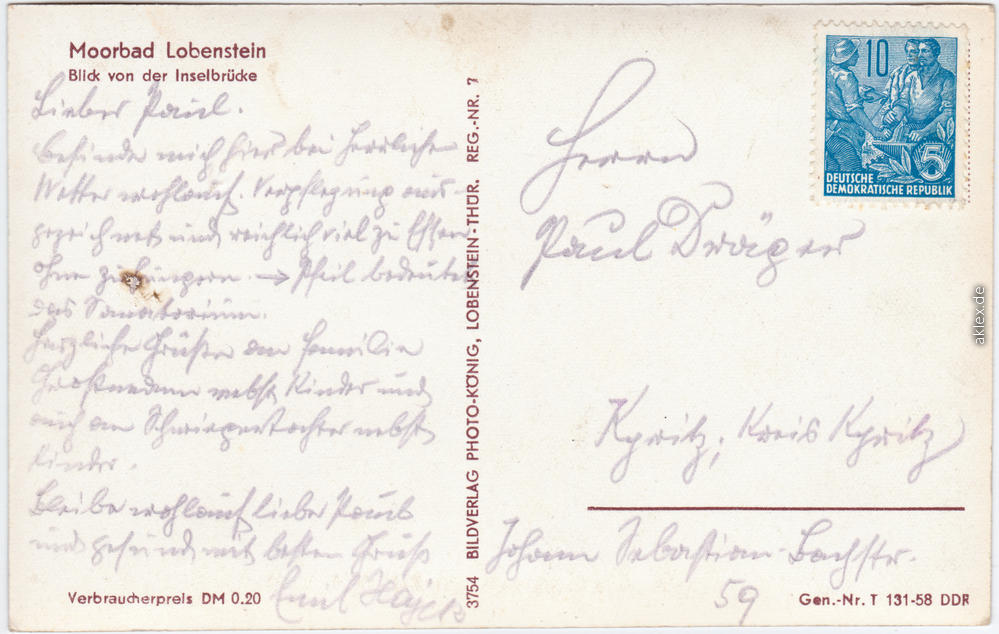 Moorbad Lobenstein
Blick von der Inselbrücke
Lieber Paul.
Befinde mich hier bei herrlichen
Wetter wohlauf. Verpflegung aus-
gezeichnet und reichlich viel zu Essen
ohne zu hungern. → Pfeil bedeutet
das Sanatorium.
Herzliche Grüße an Familie
nebst Kinder und
auch an Schwiegertochter nebst
Kinder.
Bleibe wohlauf lieber Paul
und gesund mit besten Gruß
Emil
Verbraucherpreis DM 0.20
3754 BILDVERLAG PHOTO-KÖNIG, LOBENSTEIN-THÜR. REG.-NR. 7
10
5
DEUTSCHE
DEMOKRATISCHE REPUBLIK
Herrn
Paul Dräger
Kyritz, Kreis Kyritz
Johann Sebastian-Bachstr.
59
Gen.-Nr. T 131-58 DDR
aklex.de